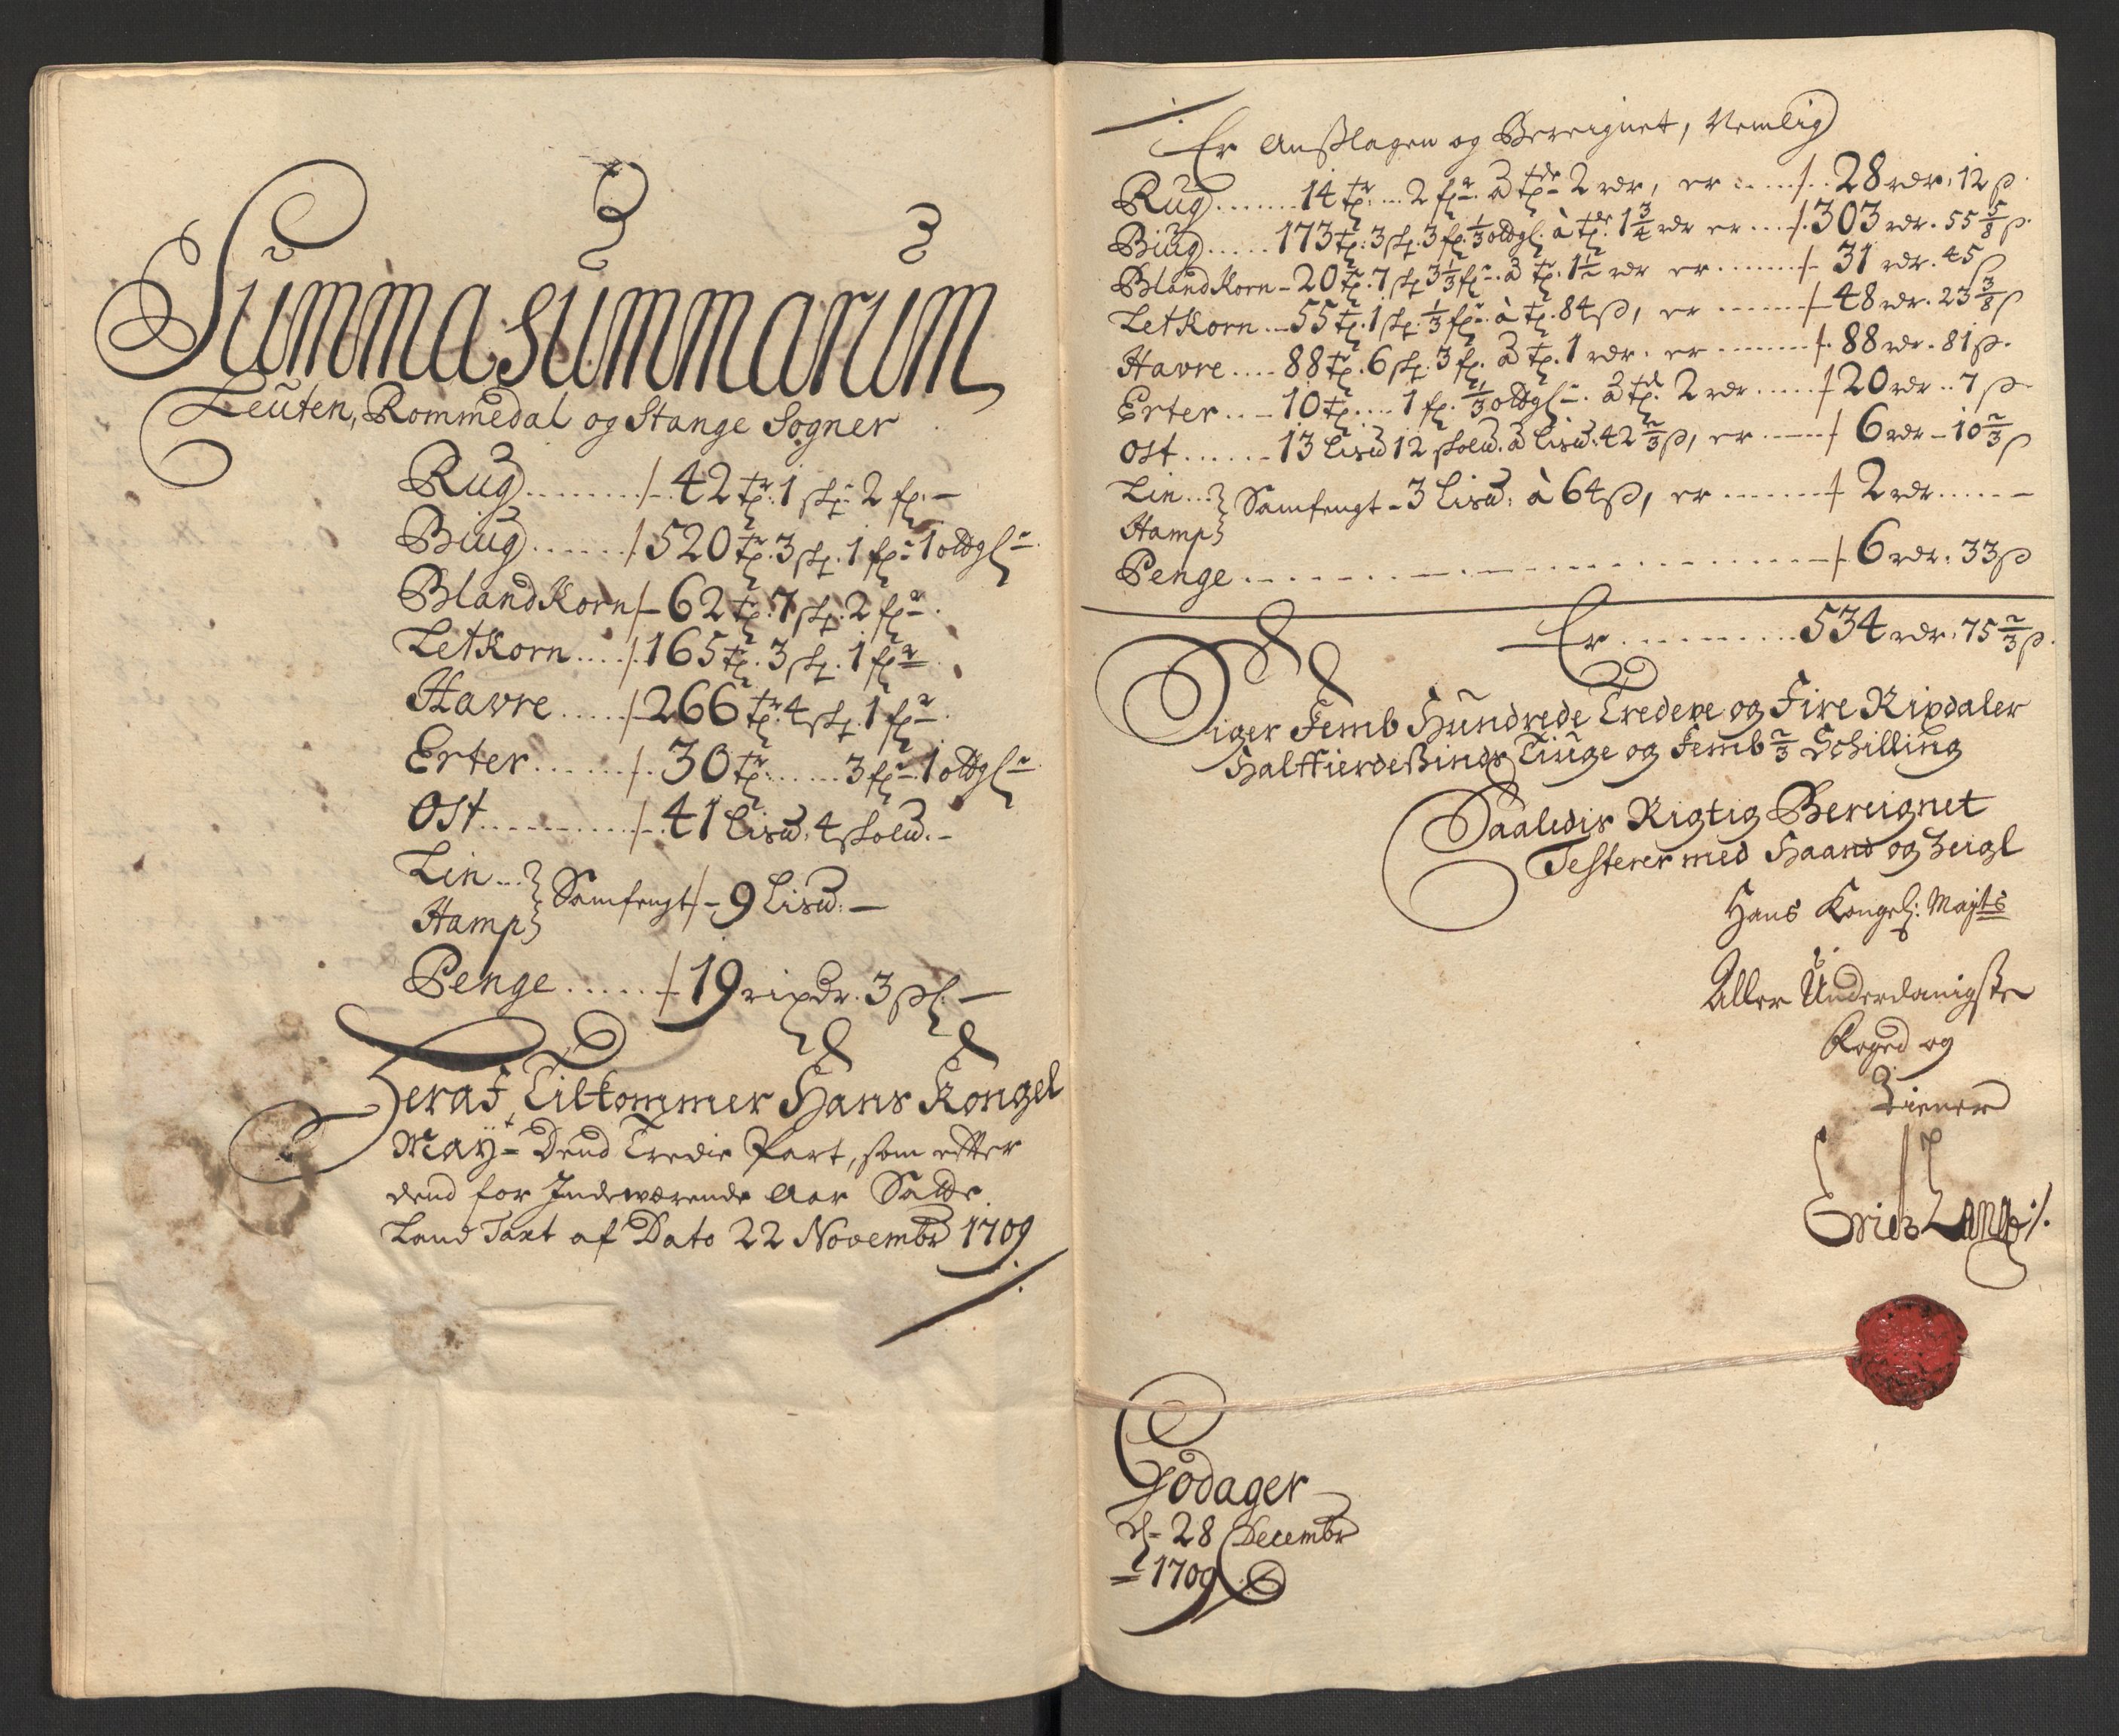 Summa summarum
Leuten, Rommedal og Stange Sogner
Rug ........ /- 42 tr: 1 skp: 2 fr: -
Biug ...... /. 520 tr. 3 skp. 1 fr: 1 oldgl:
BlandKorn /- 62 tr. 7 skp. 2 fr:
LetKorn .... /. 165 tr. 3 skp. 1 fr:
Havre ..... /- 266 tr. 4 skp. 1 fr:
Erter ...... /. 30 tr: ...... 3 fr: 1 oldgl:
Ost .......... /- 41 Lisd: 4 skold. -
Lin ... } Samfengt /- 9 Lisd: -
Hamp }
Penge ..... /- 19 rixdr. 3 sl: -
Heraf Tilkommer Hans Kongel
Mayt= Dend Tredie Part, som efter
dend for Indeværende Aar Satte
Land Taxt af Dato 22 Novembr 1709
Er Anslagen og Bereignet, Nemlig
Rug ....... 14 tr: ... 2 fr: à tde 2 rdr, er ..... /. 28 rdr. 12 s
Biug ..... 173 tr: 3 skp. 3 fr. 1/3 oldgl. à tde 1 3/4 rdr er ... /. 303 rdr. 55 5/8 s
BlandKorn - 20 tr. 7 skp 3 1/3 fr: à tr. 1 1/2 rdr er ....... /- 31 rdr. 45 s
LetKorn ... 55 tr. 1 skp. 1/3 fr: à tr. 84 s, er ...... /- 48 rdr. 23 3/8 s
Havre .... 88 tr. 6 skp. 3 fr. à tr. 1 rdr. er ....... /. 88 rdr. 81 s.
Erter ... 10 tr .... 1 fr. 1/3 oldgl: à td. 2 rdr ..... /- 20 rdr .. 7 s
Ost ...... 13 Lisd 12 skold. à Lisd. 42 2/3 s, er ..... /- 6 rdr - 10 2/3 s
Lin ... } Samfengt - 3 Lisd: à 64 s, er ....... /- 2 rdr ......
Hamp }
Penge ........................ /- 6 rdr. 33 s
Er ......... 534 rdr. 75 2/3 s.
Siger Femb Hundrede Tredeve og Fire Rixdaler
Halffierdesinds Tiuge og Femb 2/3 Schilling
Saaledis Rigtig Bereignet
Testerer med Haand og Zeigl
Hans Kongel: Mayts
Aller Underdanigste
Foged og
Tiener
Erich Lange ./.
Godager
d= 28 Decembr
= 1709